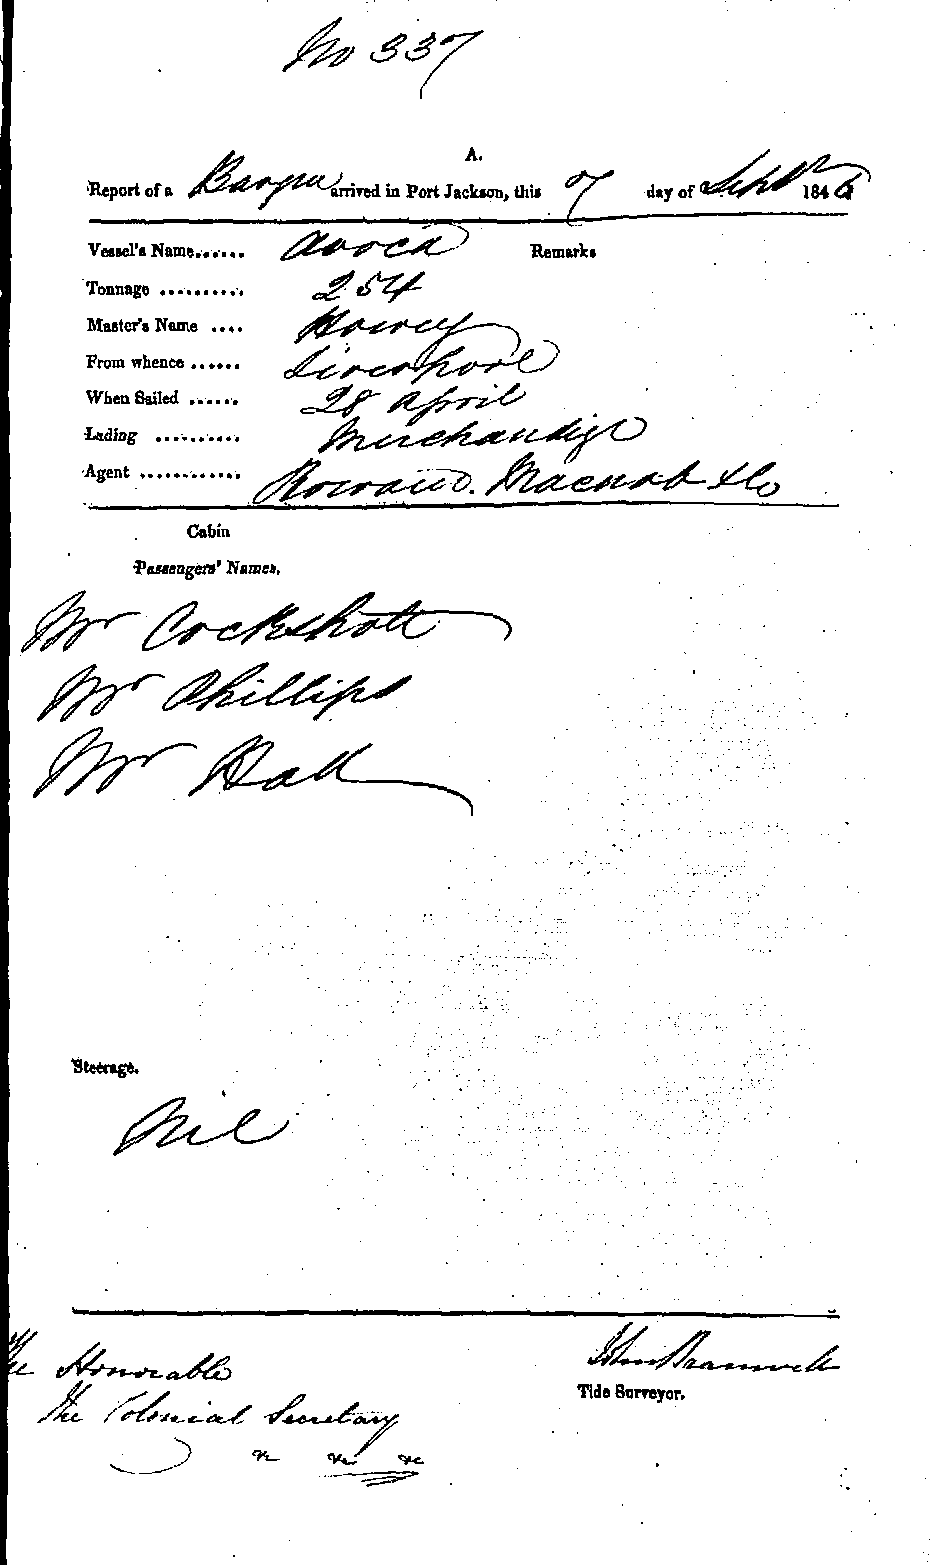 No 337
A.
Report of a Barque arrived in Port Jackson, this 7 day of Septr 1846
Vessel's Name...... Avoca Remarks
Tonnage .......... 254
Master's Name ....
From whence ...... Liverpool
When Sailed ...... 28 April
Lading .......... Merchandize
Agent ............ Rowand. Macnab & Co
Cabin
Passengers' Names.
Mr Cockshott
Mr Phillips
Mr Hall
Steerage.
Nil
The Honorable John Bramwell
Tide Surveyor.
The Colonial Secretary
&c &c &c